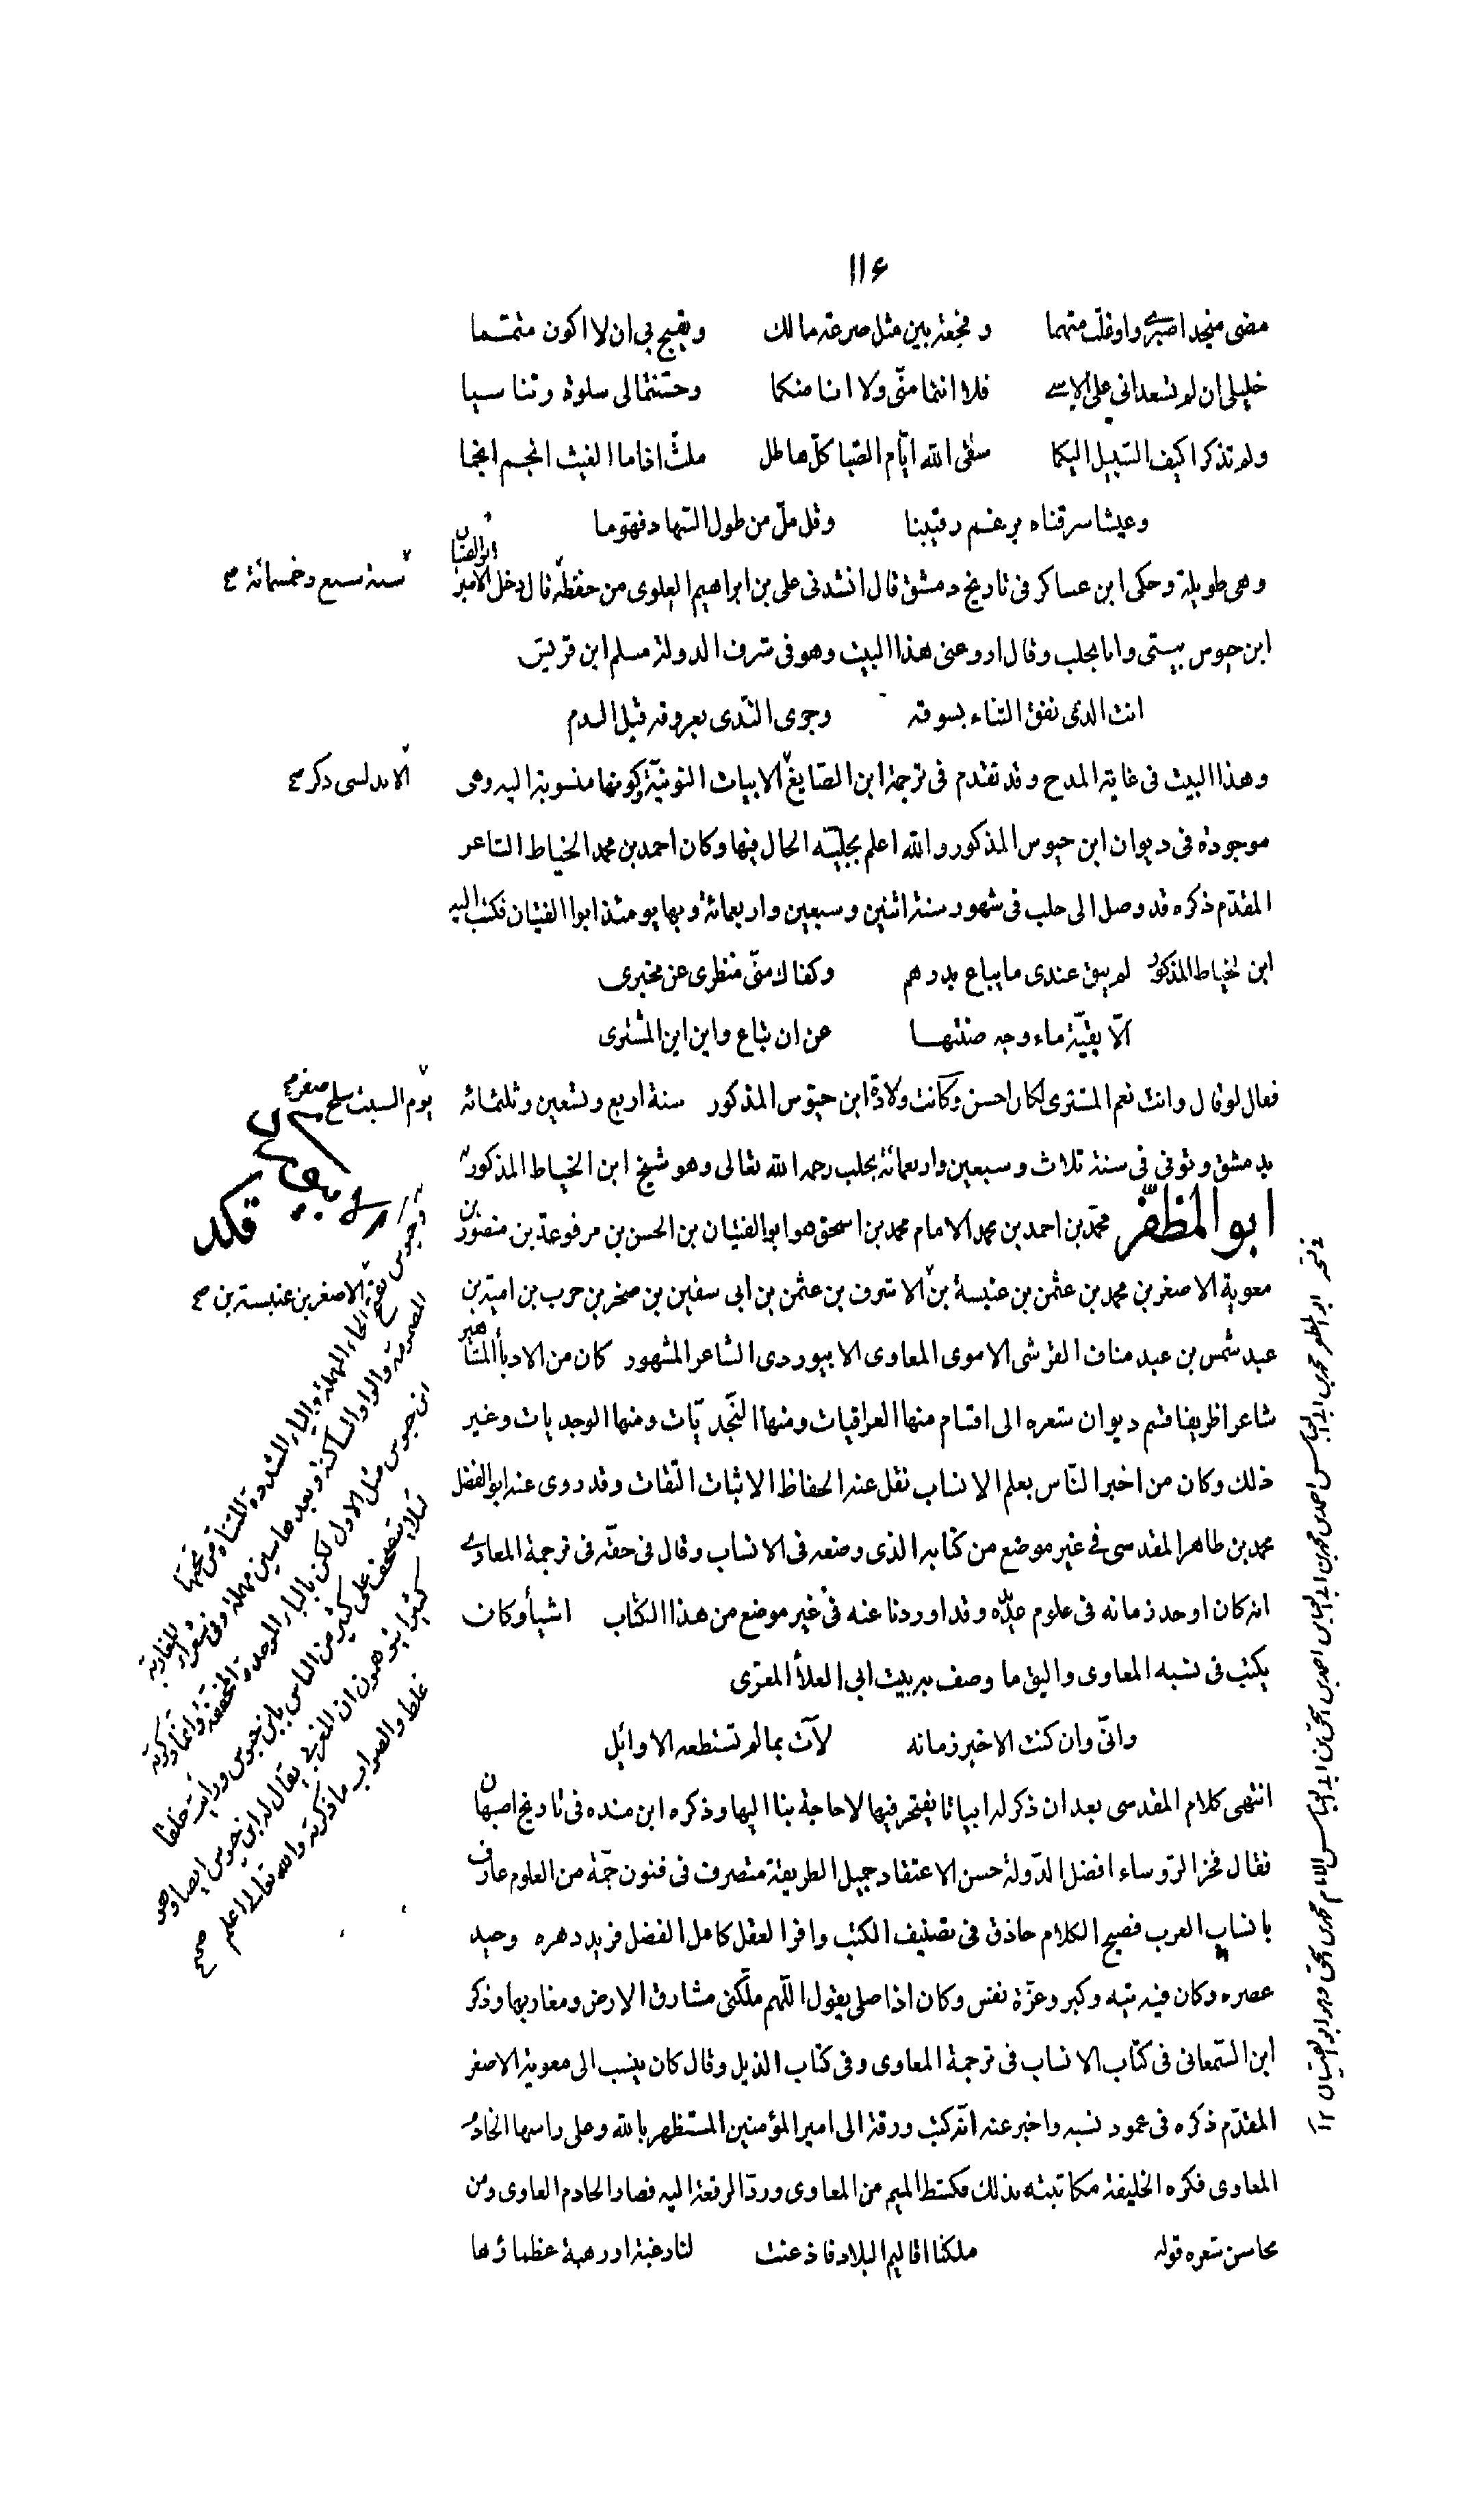 ١١٤
مضى منجدا صبرى واوغلت متهما و فجعة بين مثل صرعة مالك ويقبح بى ان لا اكون متمما
خليلى ان لم تسعدانى على الاسى فلا انتما منّى ولا انا منكما وحسّنتما لى سلوة وتناسيا
ولم تذكرا كيف السبيل اليكما سقى الله ايّام الصّبا كلّ هاطل ملثّ اذا ما الغيث اثجم اثجما
وعيشا سرقناه برغم رقيبنا وقل ملّ من طول السّهاد فهوّما
وهى طويلة وحكى ابن عساكر فى تاريخ دمشق قال انشدنى على بن ابراهيم العلوى من حفظه قال دخل الامير ابو الفتيان
سنة سبع وخمسمائة صح
ابن حيوس بيتى وانا بحلب وقال ارو عنى هذا البيت وهو فى شرف الدولة مسلم ابن قريش
انت الذى نفق الثناء بسوقه وجرى النّدى بعروقه قبل الدم
وهذا البيت فى غاية المدح وقد تقدم فى ترجمة ابن الصّايغ الابيات النونيّة وكونها منسوبة اليه وهى
الاندلسى ذكر صح
موجودة فى ديوان ابن حيوس المذكور والله اعلم بجليّة الحال فيها وكان احمد بن محمد الخياط الشاعر
المقدّم ذكره قد وصل الى حلب فى شهور سنة اثنين وسبعين واربعمائة وبها يومئذ ابوا الفتيان فكتب اليه
ابن الخياط المذكور لم يبق عندى ما يباع بدرهم وكفاك منّى منظرى عن مخبرى
الّا بقيّة ماء وجه صنتها عن ان تباع واين اين المشترى
فقال لو قال وانت نعم المشترى لكان احسن وكانت ولادة ابن حيّوس المذكور سنة اربع وتسعين وثلثمائة
يوم السبت سلخ صفر صح
بدمشق وتوفى فى سنة ثلاث وسبعين واربعمائة بحلب رحمه الله تعالى وهو شيخ ابن الخياط المذكور
ابو المظفّر محمّد بن احمد بن محمد الامام محمد بن اسحق هو ابو الفتيان بن الحسن بن مرفوعة بن منصور بن
معوية الاصغر بن محمد بن عثمن بن عنبسة بن الاشرف بن عثمن بن ابى سفين بن صخر بن حرب بن امية بن
الاصغر بن عنبسة بن صح
عبد شمس بن عبد مناف القرشى الاموى المعاوى الابيوردى الشاعر المشهور كان من الادبأ المشاهير
شاعرا ظريفا قسم ديوان شعره الى اقسام منها العراقيات ومنها النّجديّات ومنها الوجديات وغير
ذلك وكان من اخبر النّاس بعلم الانساب نقل عنه الحفاظ الاثبات الثّقات وقد روى عنه ابو الفضل
محمد بن طاهر المقدسى فى غير موضع من كتابه الذى وضعه فى الانساب وقال فى حقّه فى ترجمة المعاوى
انه كان اوحد زمانه فى علوم عدّه وقد اوردنا عنه فى غير موضع من هذا الكتاب اشيأ وكان
يكتب فى نسبه المعاوى واليق ما وصف به بيت ابى العلأ المعرّى
وانّى وان كنت الاخير زمانه لآت بما لم تستطعه الاوائل
انتهى كلام المقدسى بعد ان ذكر له ابياتا يفتخر فيها لا حاجة بنا اليها وذكره ابن منده فى تاريخ اصبهان
فقال فخر الرّوساء افضل الدّولة حسن الاعتقاد جميل الطريقة متصرف فى فنون جمّة من العلوم عارف
بانساب العرب فصيح الكلام حاذق فى تصنيف الكتب وافر العقل كامل الفضل فريد دهره وحيد
عصره وكان فيه تيه وكبر وعزّة نفس وكان اذا صلى يقول اللّهم ملّكنى مشارق الارض ومغاربها وذكر
ابن السّمعانى فى كتاب الانساب فى ترجمة المعاوى وفى كتاب الذيل وقال كان ينسب الى معوية الاصغر
المقدّم ذكره فى عمود نسبه واخبر عنه انّه كتب ورقة الى امير المؤمنين المستظهر بالله وعلى راسها الخادم
المعاوى فكره الخليفة مكاتبته بذلك فكشط الميم من المعاوى وردّ الرقعة اليه فصار الخادم العاوى ومن
محاسن شعره قوله ملكنا اقاليم البلاد فاذعنت لنا رغبة او رهبة عظماؤها
وحيوس بفتح الحاء المهملة والياء المشددة المثناة من تحتها
المضمومة والواو الساكنة وبعدها سين مهملة وفى شعراء المغاربة
ابن حبوس مثل الاول لكن بالباء الموحدة المخففة وانما ذكرته
لئلا يتصحف على كثير من الناس بابن حيوس ورأيت خلقا
كثيرا يتوهمون ان المغربى يقال له ابن حيوس ايضا وهو
غلط والصواب ما ذكرته والله تعالى اعلم صح